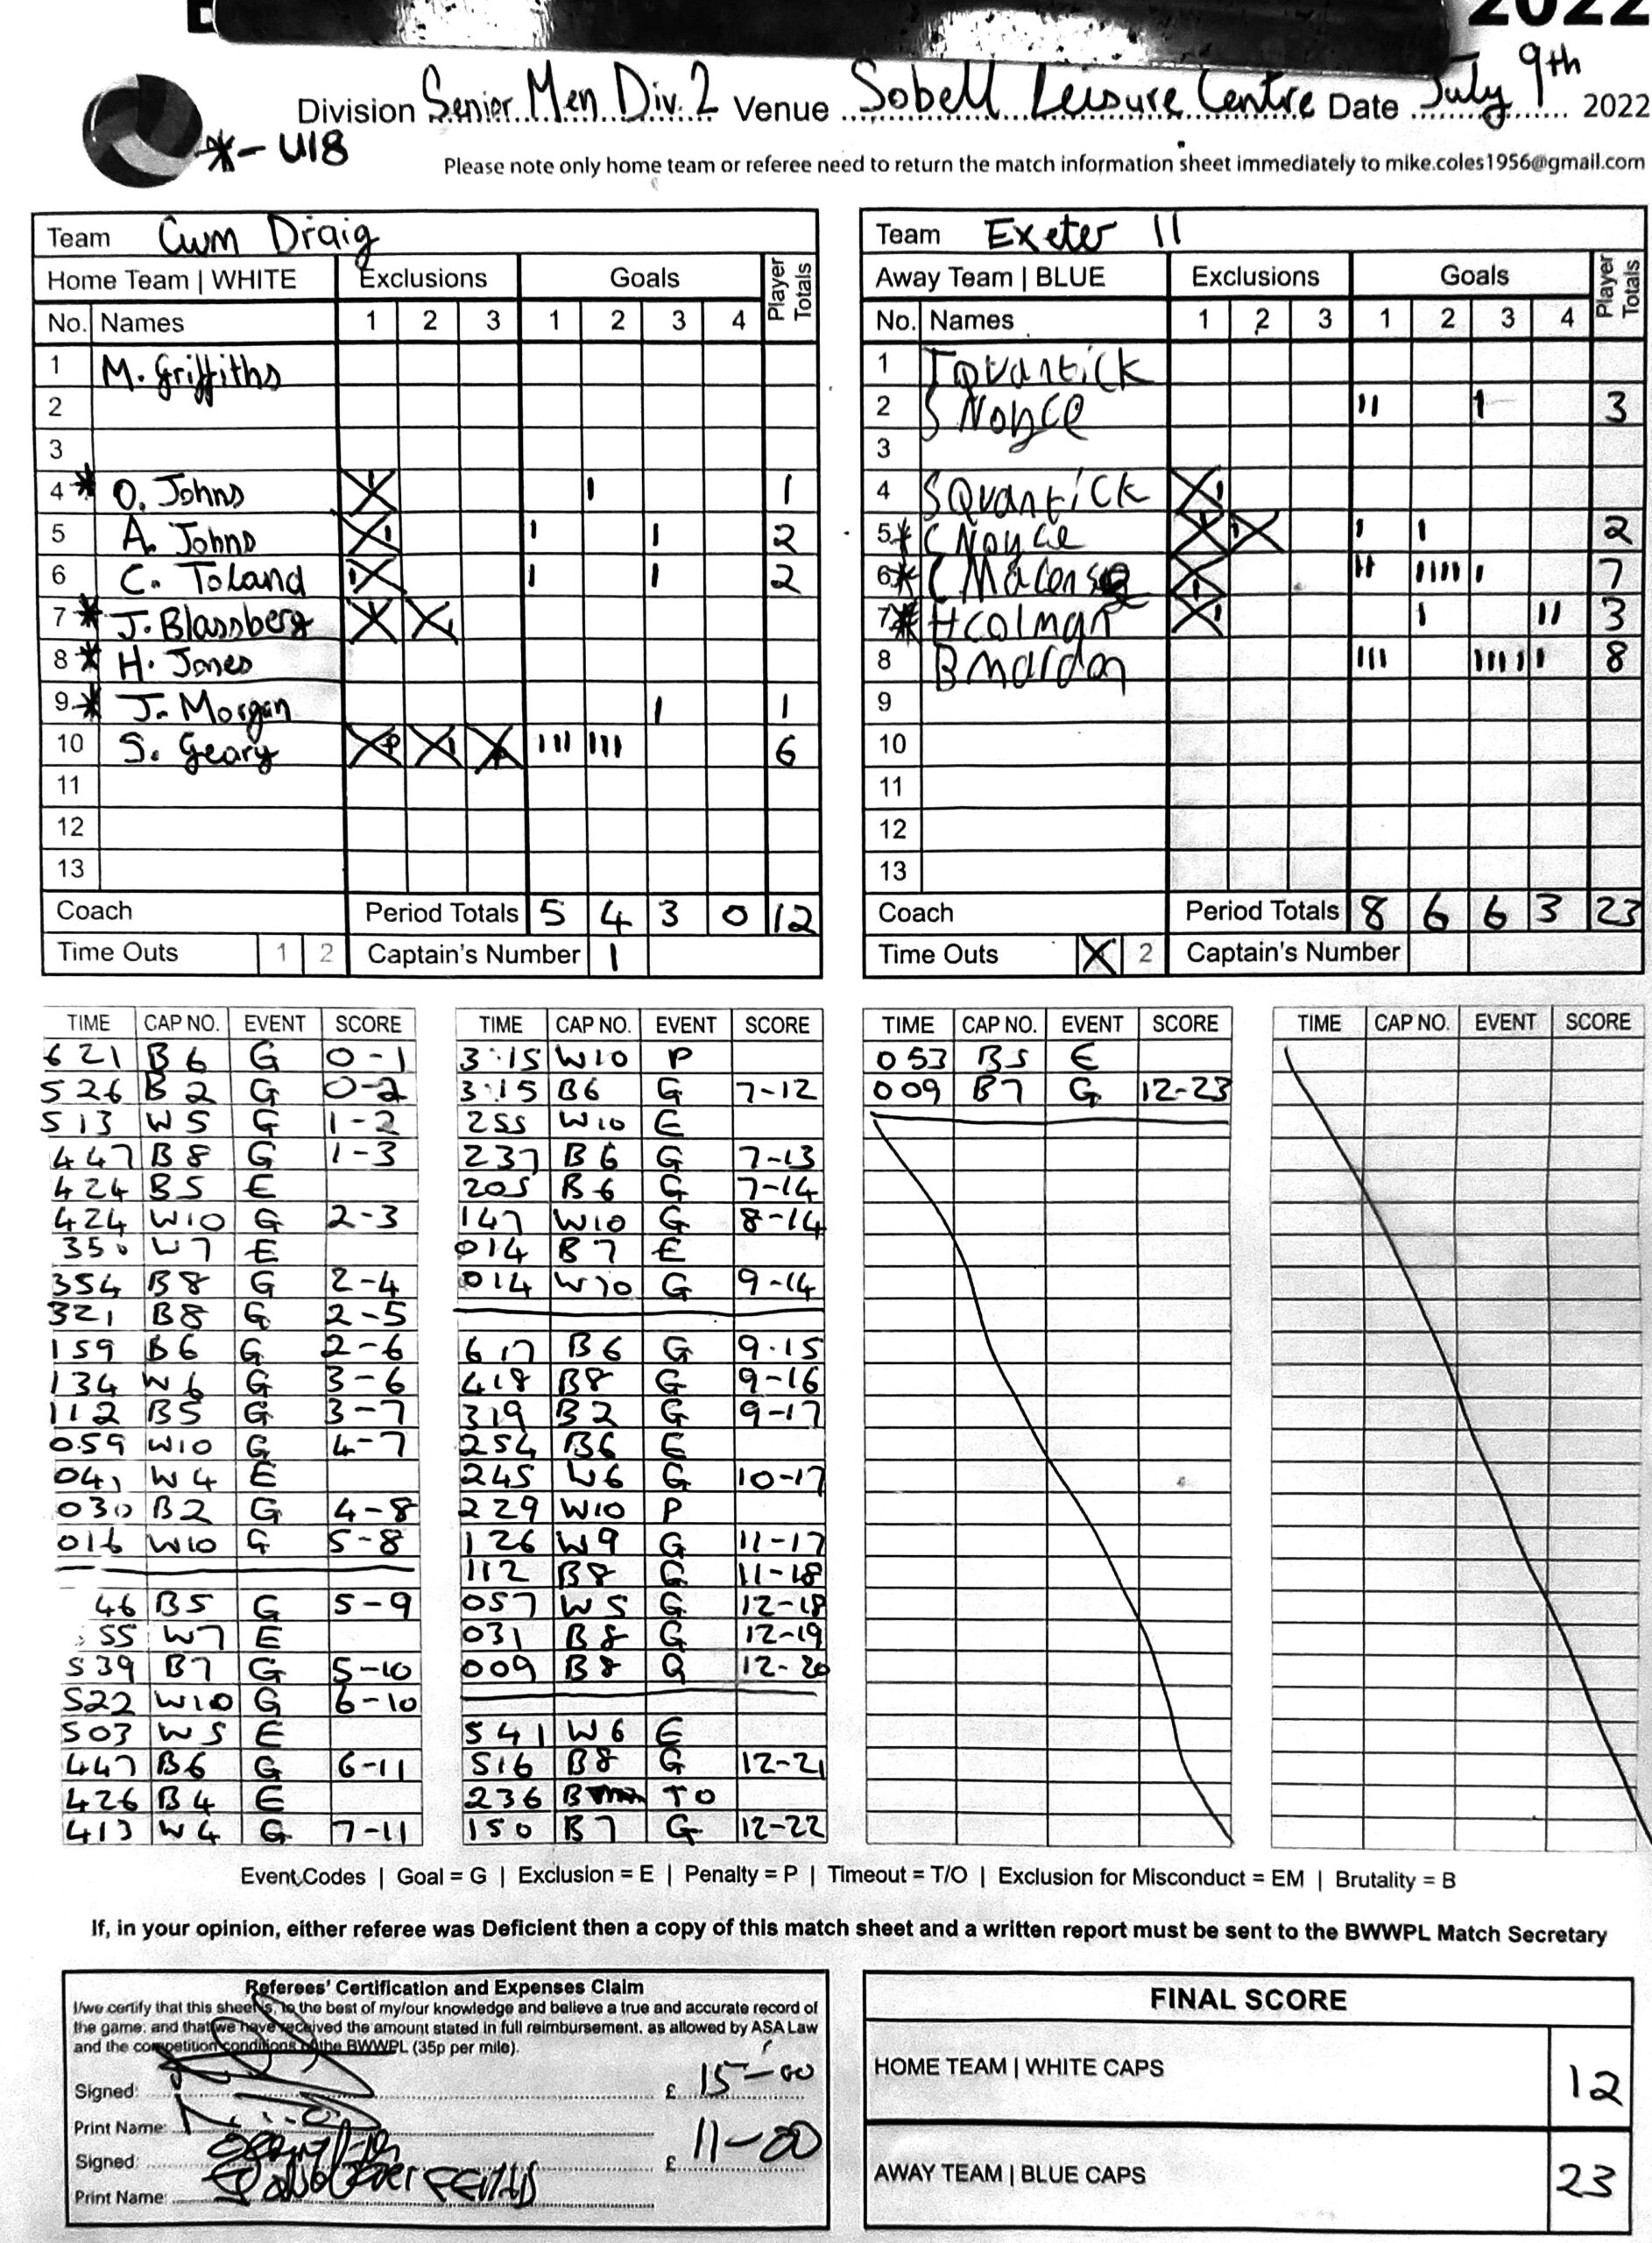 2022
Division Senior Men Div. 2 Venue Sobell Leisure Centre Date July 9th 2022
*- U18
Please note only home team or referee need to return the match information sheet immediately to mike.coles1956@gmail.com
Team Cwm Draig
Home Team | WHITE Exclusions Goals Player Totals
No. Names 1 2 3 1 2 3 4
1 M. Griffiths
2
3
4 * O. Johns X I I 1
5 A. Johns X I I I 2
6 C. Toland X I I I 2
7 * J. Blassberg X X
8 * H. Jones
9 * J. Morgan I 1
10 S. Geary X P X X III III 6
11
12
13
Coach Period Totals 5 4 3 0 12
Time Outs 1 2 Captain's Number 1
Team Exeter II
Away Team | BLUE Exclusions Goals Player Totals
No. Names 1 2 3 1 2 3 4
1 T Quantick
2 S Noyce II I 3
3
4 S Quantick X
5 * C Noyce X X I I 2
6 * C X II IIII I 7
7 * H Colman X I II 3
8 B Mardon III IIII I 8
9
10
11
12
13
Coach Period Totals 8 6 6 3 23
Time Outs X 2 Captain's Number
TIME CAP NO. EVENT SCORE
6 21 B 6 G 0-1
5 26 B 2 G 0-2
5 13 W 5 G 1-2
4 47 B 8 G 1-3
4 24 B 5 E
4 24 W10 G 2-3
350 W 7 E
354 B 8 G 2-4
321 B8 G 2-5
159 B6 G 2-6
134 W 6 G 3-6
112 B5 G 3-7
059 W10 G 4-7
041 W 4 E
030 B2 G 4-8
016 W10 G 5-8
46 B5 G 5-9
55 W7 E
539 B7 G 5-10
522 W10 G 6-10
503 W 5 E
447 B6 G 6-11
426 B 4 E
413 W 4 G 7-11
TIME CAP NO. EVENT SCORE
3:15 W10 P
3:15 B6 G 7-12
255 W10 E
237 B 6 G 7-13
205 B 6 G 7-14
147 W10 G 8-14
014 B 7 E
014 W10 G 9-14
617 B6 G 9-15
418 B8 G 9-16
319 B2 G 9-17
254 B6 E
245 W6 G 10-17
229 W10 P
126 W9 G 11-17
112 B8 G 11-18
057 W5 G 12-18
031 B 8 G 12-19
009 B 8 G 12-20
541 W 6 E
516 B8 G 12-21
236 B TO
150 B7 G 12-22
TIME CAP NO. EVENT SCORE
053 B5 E
009 B7 G 12-23
TIME CAP NO. EVENT SCORE
Event Codes | Goal = G | Exclusion = E | Penalty = P | Timeout = T/O | Exclusion for Misconduct = EM | Brutality = B
If, in your opinion, either referee was Deficient then a copy of this match sheet and a written report must be sent to the BWWPL Match Secretary
Referees' Certification and Expenses Claim
I/we certify that this sheet is, to the best of my/our knowledge and believe a true and accurate record of
the game: and that we have received the amount stated in full reimbursement. as allowed by ASA Law
and the competition conditions of the BWWPL (35p per mile).
Signed: £ 15-00
Print Name:
Signed: £ 11-00
Print Name:
FINAL SCORE
HOME TEAM | WHITE CAPS 12
AWAY TEAM | BLUE CAPS 23